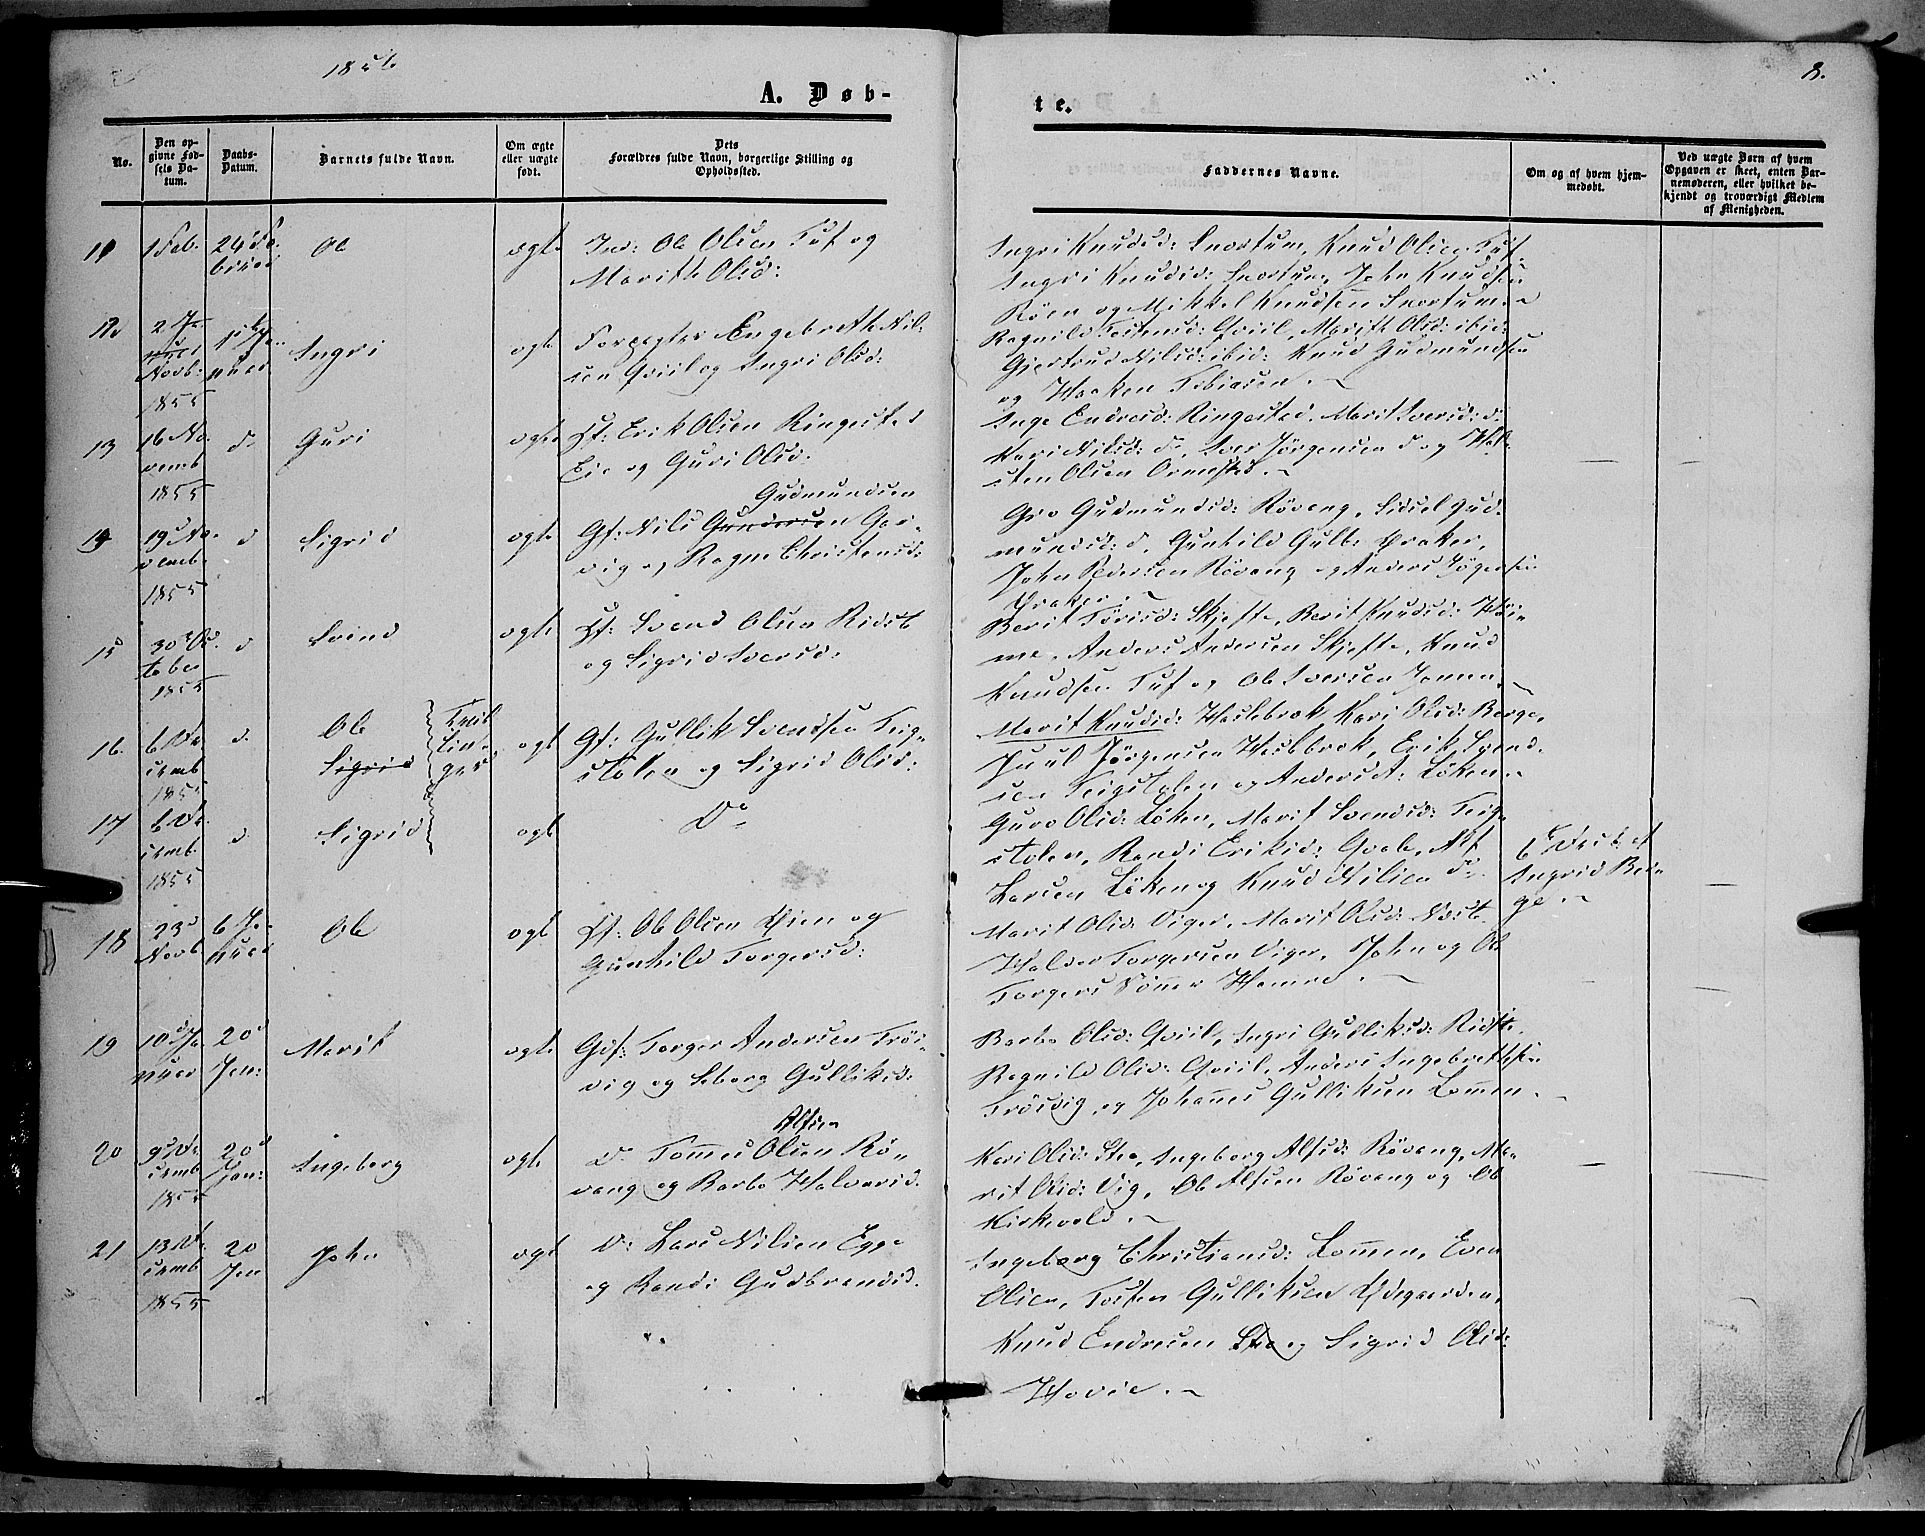 1856
8.
A. Døb-
te.
No.
Den op-
givne Fød-
sels Da-
tum.
Daabs-
Datum.
Barnets fulde Navn.
Om ægte
eller uægte
født.
Dets
Forældres fulde Navn, borgerlige Stilling og
Opholdssted.
Faddernes Navne.
Om og af hvem hjem-
medøbt.
Ved uægte Børn af hvem
Opgaven er skeet, enten Bar-
nemoderen, eller hvilket be-
kjendt og troværdigt Medlem
af Menigheden.
11
1 Feb.
24 Fe-
bruar
Ole
ægte
Ind: Ole Olsen Tuf og
Marith Olsd:
Ingri Knudsd: Snortum, Knud Olsen Tuf,
Ingri Knudsd: Snortum, John Knudsen
Röen og Mikkel Knudsen Snortum
12
Novb:
1855
Ingri
ægte
Forpagter Engebreth Nil-
sen Qviil og Ingri Olsd:
Ragnild Tostensd: Qviil, Marith Olsd: ibid:
Gjertrud Nilsd: ibid: Knud Gudmundsen
og Haaken Tobiasen.
13
16 No-
vemb
1855
do
Guri
ægte
Erik Olsen Ringested
Eie og Guri Olsd:
Inge Endresd: Ringested, Marit Iversd: do
Kari Nilsd: do, Iver Jörgensen do og Hal-
sten Olsen Ormsted.
14
19 No-
vemb.
1855
d
Sigrid
ægte
Gudmundsen
Gf: Nils Gundersen Gar-
vig og Ragne Christensd:
Gro Gudmundsd: Rövang, Sidsel Gud-
mundsd: d, Gunhild Gulb: Braker,
John Pedersen Rövang og Anders Jögensen
Braker.
15
30 Oc-
tober
1855
d
Svend
ægte
Svend Olsen Ridste
og Sigrid Iversd:
Berit Torisd: Skjefte, Berit Knudsd: Höi-
me, Anders Andersen Skjefte, Knud
Knudsen Tuf og Ole Iversen
16.
6 De-
cemb
1855
d.
Ole
Sigrid
Tvil-
lin-
ger
ægte
Gf: Gullik Svendsen Teig-
stolen og Sigrid Olsd:
Marit Knudsd: Haslebrek, Kari Olsd: Berge,
Juul Jörgensen Haslebrek, Erik Svend-
sen Teigstolen og Anders A: Löken.
17
6 De-
cemb.
1855
d.
Sigrid
ægte
Do
Guro Olsd: Löken, Marit Svendsd: Teig-
stolen, Randi Eriksd: Qvale, Alf
Larsen Löken og Knud Nilsen do
6 Decbr. af
Ingrid Ber-
ge.
18
23d
Novb
6 Ja-
nuar
Ole
ægte
Ole Olsen Oien og
Gunhild Torgersd:
Marit Olsd: Viger, Marit Olsd:
Halvor Torgersen Viger, John og Ole
Torgers Sönner Hamre.
19
10d Ja-
nuar
20d
Jan:
Marit
ægte
Gdf: Torger Andersen Tröi-
vig og Seborg Gulliksd:
Barbo Olsd: Qviil, Ingri Gulliksd: Ridste,
Ragnild Olsd: Qviil, Anders Ingebrethsen
Tröivig, og Johannes Gulliksen Lomen.
20
9 De-
cemb
1855
20d
Jan:
Ingeborg
ægte
Alfsen
Do Tomes Olsen Rö-
vang og Barbo Halvorsd.
Kari Olsd: Steo, Ingeborg Alfsd: Rövang, Ma-
rit Olsd: Vig, Ole Alfsen Rövang og Ole
Kirkevold.
21
13 De-
cemb
1855
20
Jan
John
ægte
Do Lars Nilsen Egge
og Randi Gudbrandsd.
Ingeborg Christiansd: Lomen, Even
Olsen, Tosten Gulliksen Ödegaarden,
Knud Endresen Steo og Sigrid Olsd:
Hovie.